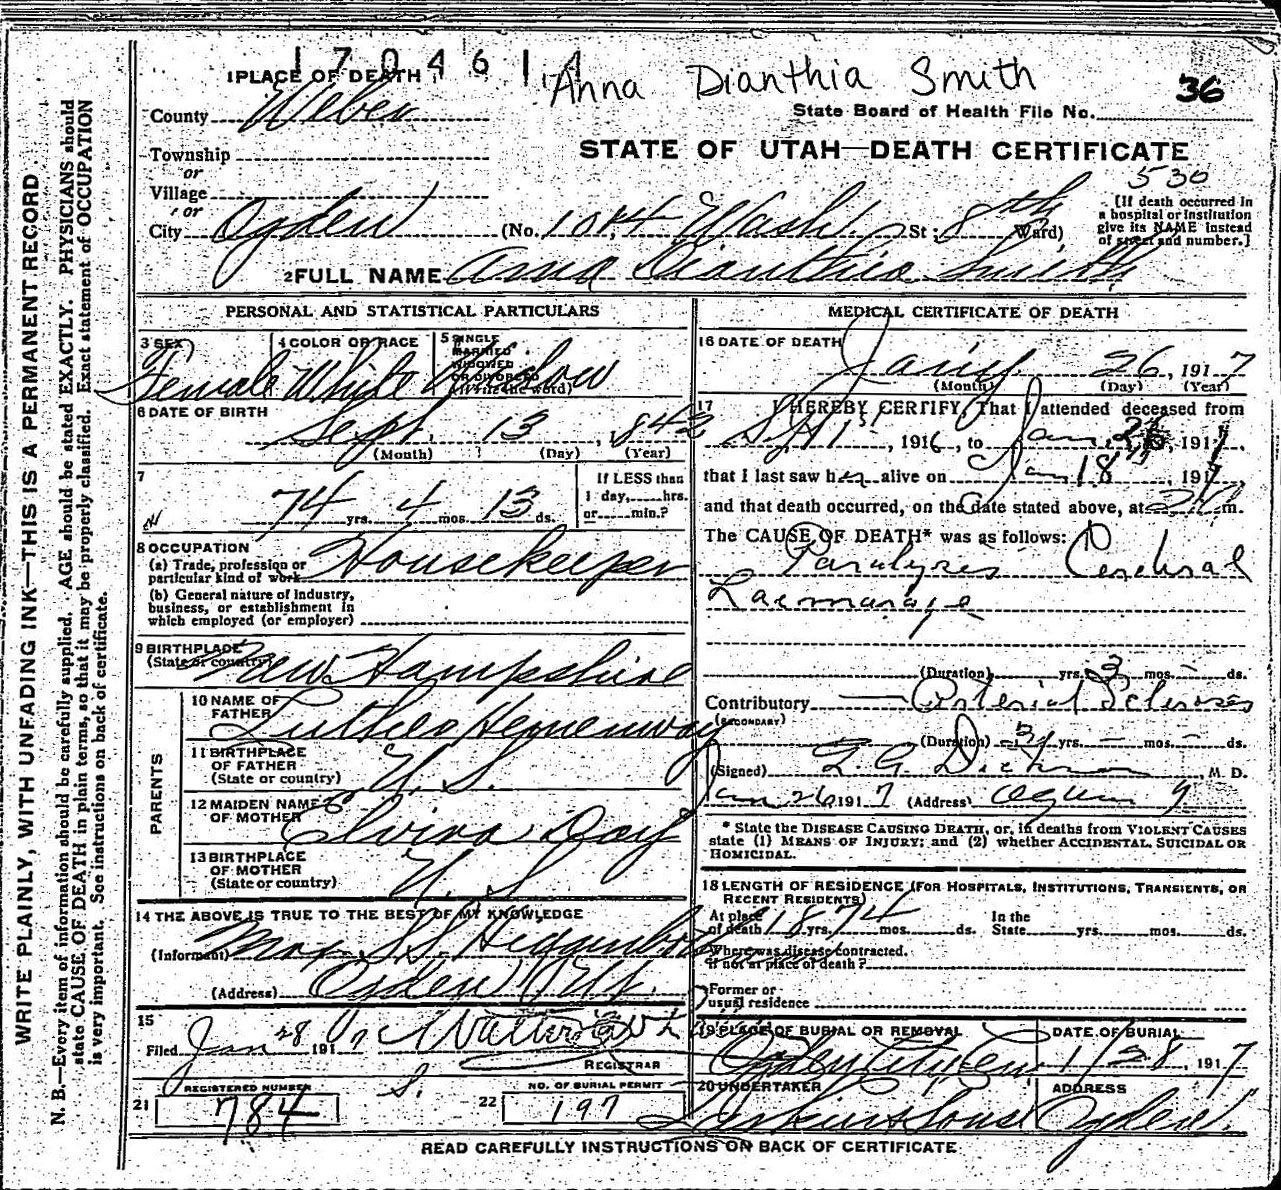 1704614
Anna Dianthia Smith
36
1 PLACE OF DEATH
State Board of Health File No.
County Weber
STATE OF UTAH—DEATH CERTIFICATE
Township
or
Village
or
530
[If death occurred in a hospital or institution give its NAME instead of street and number.]
City Ogden (No. 1014 Wash. St; 8th Ward)
2 FULL NAME Anna Dianthia Smith
PERSONAL AND STATISTICAL PARTICULARS
3 SEX Female
4 COLOR OR RACE White
5 SINGLE MARRIED WIDOWED OR DIVORCED (Write the word) Widow
6 DATE OF BIRTH
Sept. 13, 1843
(Month) (Day) (Year)
7
74 yrs. 4 mos. 13 ds.
If LESS than 1 day, hrs. or min.?
8 OCCUPATION
(a) Trade, profession or particular kind of work Housekeeper
(b) General nature of industry, business, or establishment in which employed (or employer)
9 BIRTHPLACE (State or country) New Hampshire
PARENTS
10 NAME OF FATHER Luther Hemenway
11 BIRTHPLACE OF FATHER (State or country) U. S.
12 MAIDEN NAME OF MOTHER Elvira Day
13 BIRTHPLACE OF MOTHER (State or country) U. S.
14 THE ABOVE IS TRUE TO THE BEST OF MY KNOWLEDGE
(Informant) S.S.
(Address) Ogden Ut.
15
Filed Jan 28 1917
REGISTRAR
21 REGISTERED NUMBER 784
22 NO. OF BURIAL PERMIT 197
MEDICAL CERTIFICATE OF DEATH
16 DATE OF DEATH
Jany. 26, 1917
(Month) (Day) (Year)
17 I HEREBY CERTIFY, That I attended deceased from
1st, 1916, to Jan. 26, 1917,
that I last saw her alive on Jan 18, 1917
and that death occurred, on the date stated above, at m.
The CAUSE OF DEATH* was as follows:
Paralysis Cerebral
(Duration) yrs. 3 mos. - ds.
Contributory Arterial Sclerosis
(SECONDARY)
(Duration) 3 yrs. - mos. - ds.
(Signed) M. D.
Jan 26 1917 (Address)
* State the DISEASE CAUSING DEATH, or, in deaths from VIOLENT CAUSES
state (1) MEANS OF INJURY; and (2) whether ACCIDENTAL, SUICIDAL OR
HOMICIDAL.
18 LENGTH OF RESIDENCE (FOR HOSPITALS, INSTITUTIONS, TRANSIENTS, OR
RECENT RESIDENTS)
At place of death 1874 yrs. mos. ds. In the State yrs. mos. ds.
Where was disease contracted. If not at place of death?
Former or usual residence
19 PLACE OF BURIAL OR REMOVAL Ogden City Cem
DATE OF BURIAL 1/28, 1917
20 UNDERTAKER Larkin & Sons
ADDRESS Ogden.
READ CAREFULLY INSTRUCTIONS ON BACK OF CERTIFICATE
WRITE PLAINLY, WITH UNFADING INK—THIS IS A PERMANENT RECORD.
N. B.—Every item of information should be carefully supplied. AGE should be stated EXACTLY. PHYSICIANS should
state CAUSE OF DEATH in plain terms, so that it may be properly classified. Exact statement of OCCUPATION
is very important. See instructions on back of certificate.